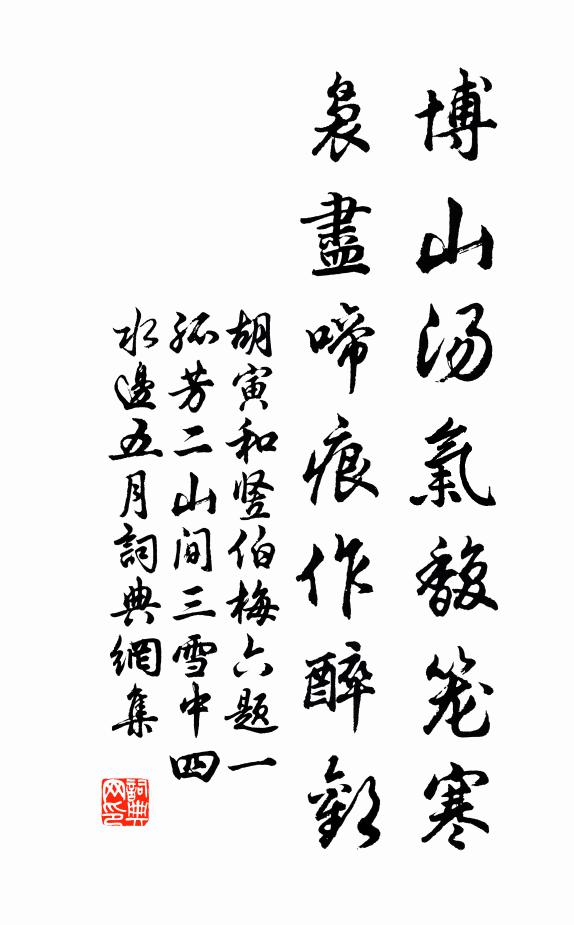 博山汤氣馥笼寒
裊盡啼痕作醉歡
胡寅和豎伯梅六题一
孤芳二山間三雪中四
水邊五月詞典網集
詞典网印